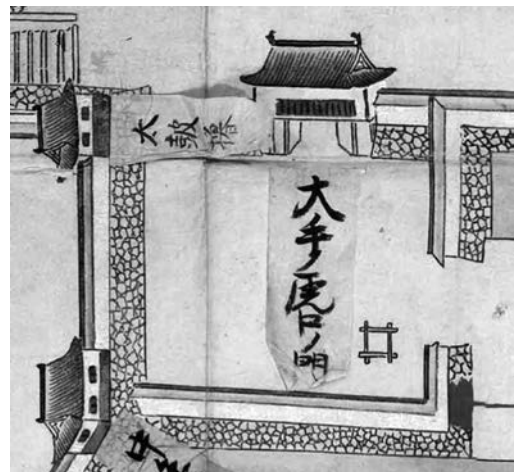 太鼓櫓
大手ノ虎口ノ門